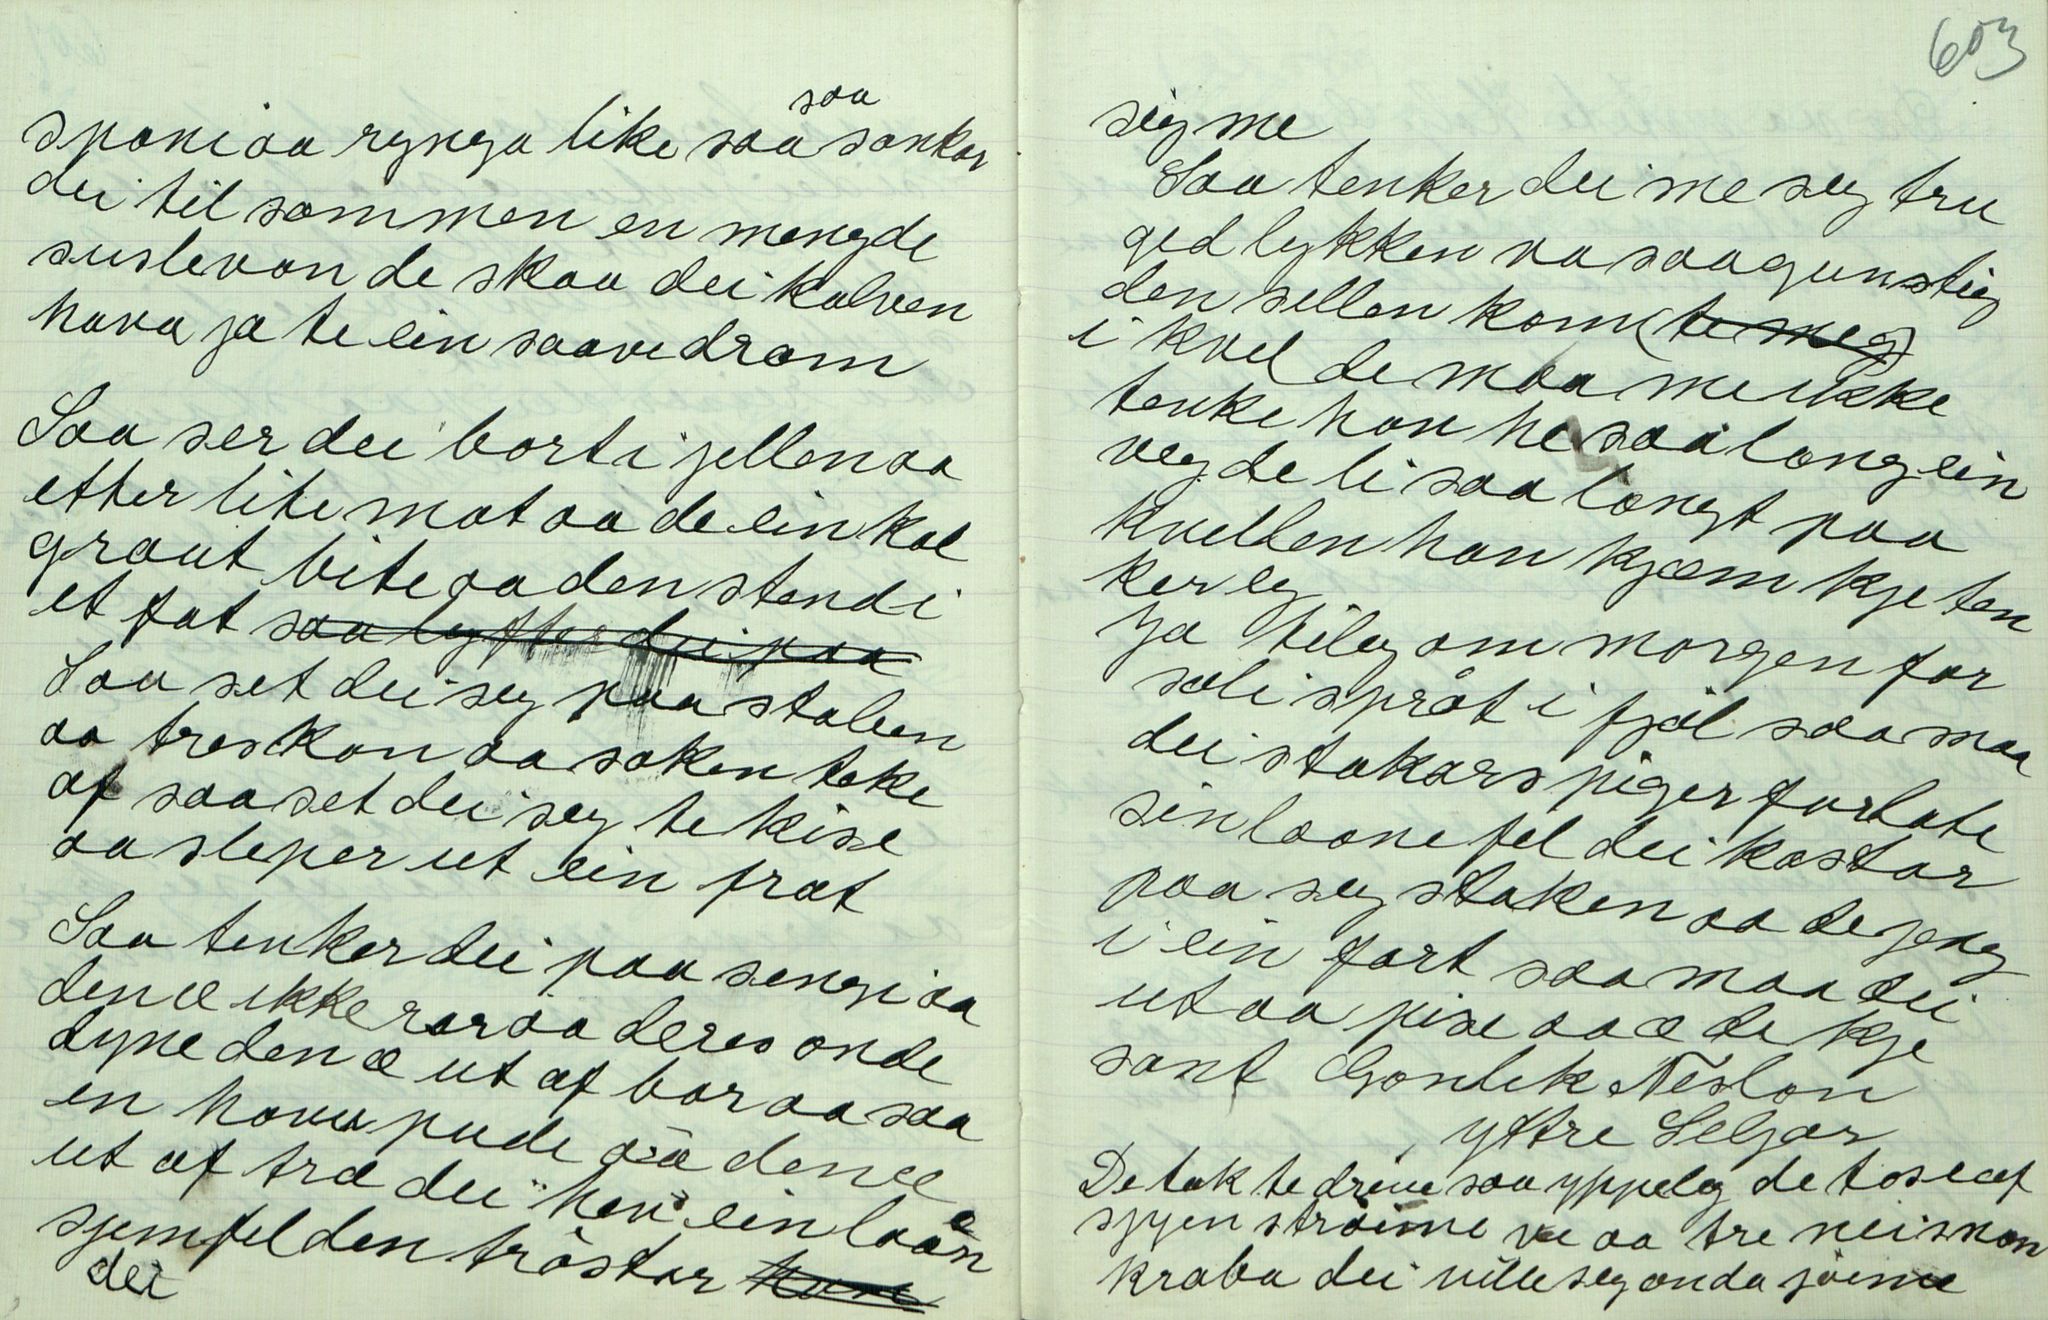 saa
spani aa rynga like saa sankar
dei til sammen en mengde
suslevon de skaa dei kalven
hava ja te ein saavedram
Saa ser dei bort i jellen aa
etter lite mat aa de ein kal
graut bite aa den stend i
et fat saa lyfter dei paa
Saa set dei seg paa stolen
aa treskon aa soken teke
af saa set dei seg te kise
aa sleper ut ein frat
Saa tenker dei paa sengi aa
den æ ikke rar aa deres onde
dyne den æ ut af bar aa saa
en hovu pude aa den æ
ut af træ dei hev ein laan
sjemfel den tröstar
dei
603
sig me
Saa tenker dei me seg tru
ged lykken va saa gunstig
den sellen kom (te meg)
i kvel de maa me ikke
tenke han he saa long ein
veg de li saa longt paa
kvellen han kjæm kje ten
ker eg
Ja tileg om morgen för
soli sprat i fjöl saa maa
dei stakars piger forlate
sin laane fel dei kastar
paa seg staken aa de geng
i ein fart saa maa dei
ut aa pise aa æ de kje
sant Gonlek Neslon
yttre Seljor
De tok te drive saa yppeleg de tose af
sjyen ströime ve aa tre neis mon
kraba dei ville seg onda jöime